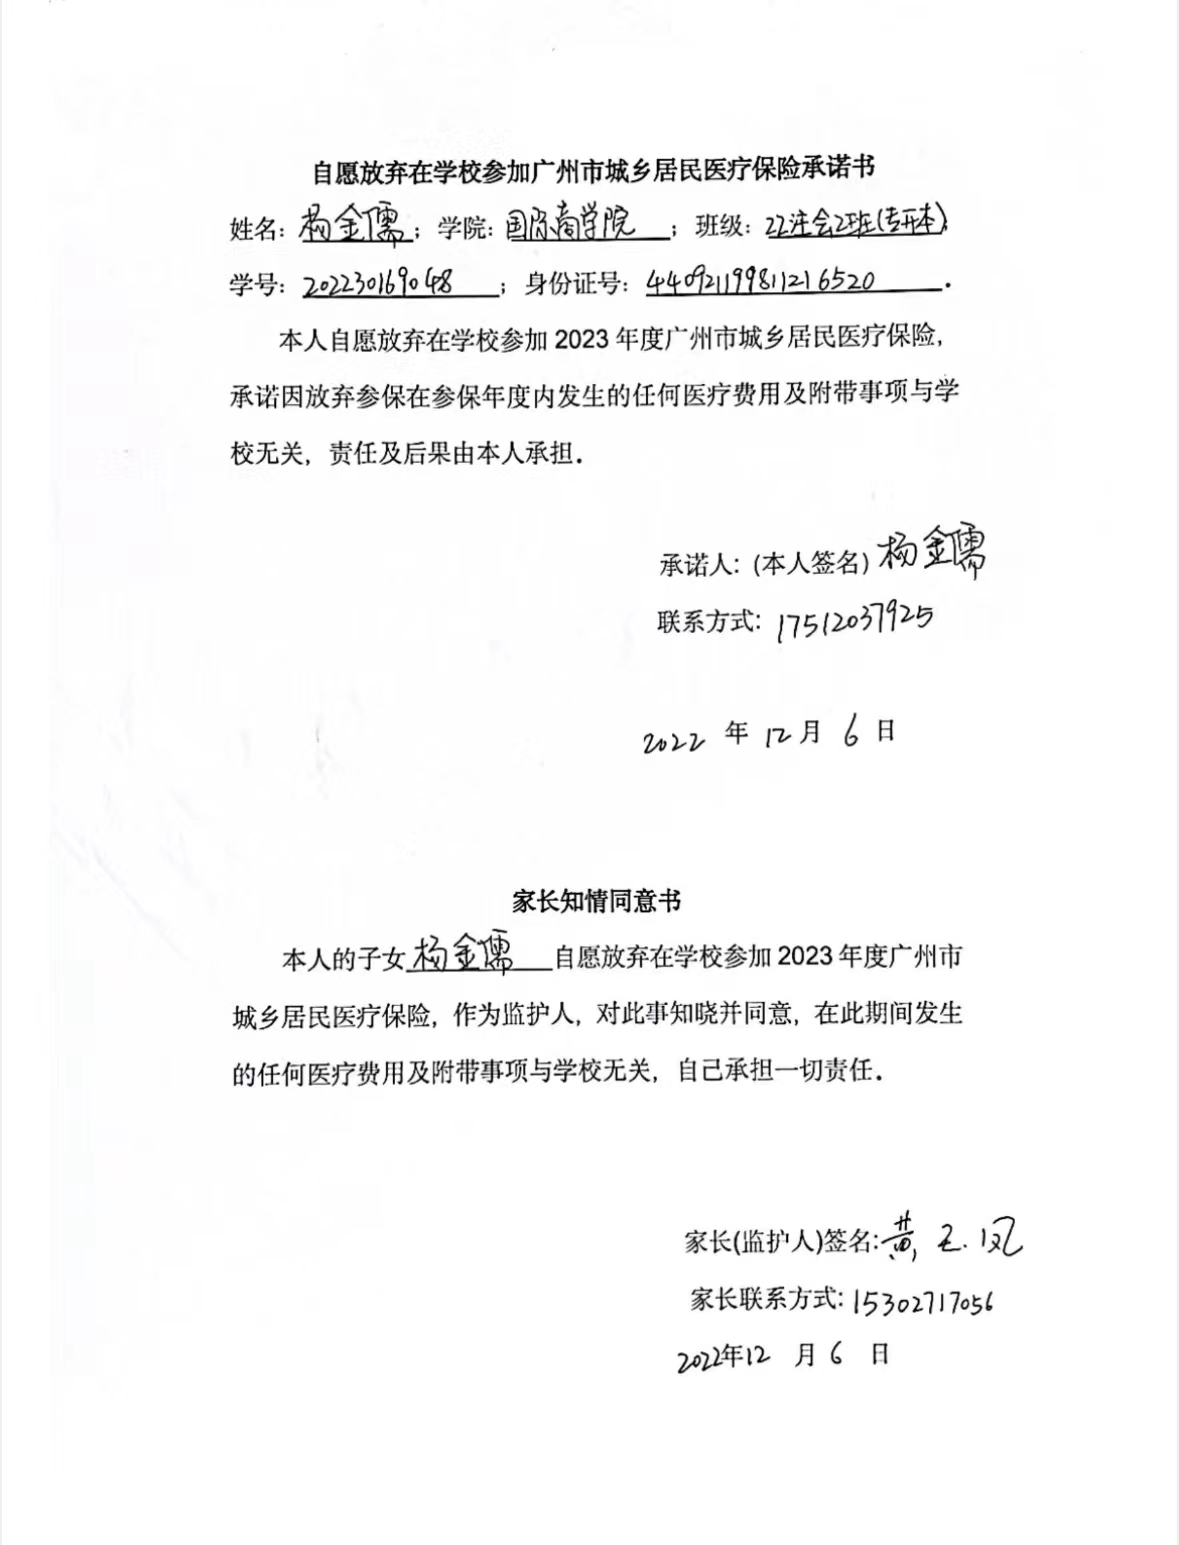 自愿放弃在学校参加广州市城乡居民医疗保险承诺书
姓名：杨金儒；学院：国际商学院；班级：22注会2班(专升本)
学号：202230169048；身份证号：440921199811216520．
本人自愿放弃在学校参加 2023 年度广州市城乡居民医疗保险，
承诺因放弃参保在参保年度内发生的任何医疗费用及附带事项与学
校无关，责任及后果由本人承担．
承诺人：(本人签名) 杨金儒
联系方式：17512037925
2022 年 12 月 6 日
家长知情同意书
本人的子女 杨金儒 自愿放弃在学校参加 2023 年度广州市
城乡居民医疗保险，作为监护人，对此事知晓并同意，在此期间发生
的任何医疗费用及附带事项与学校无关，自己承担一切责任．
家长(监护人)签名：黄玉凤
家长联系方式：15302717056
2022年12 月 6 日